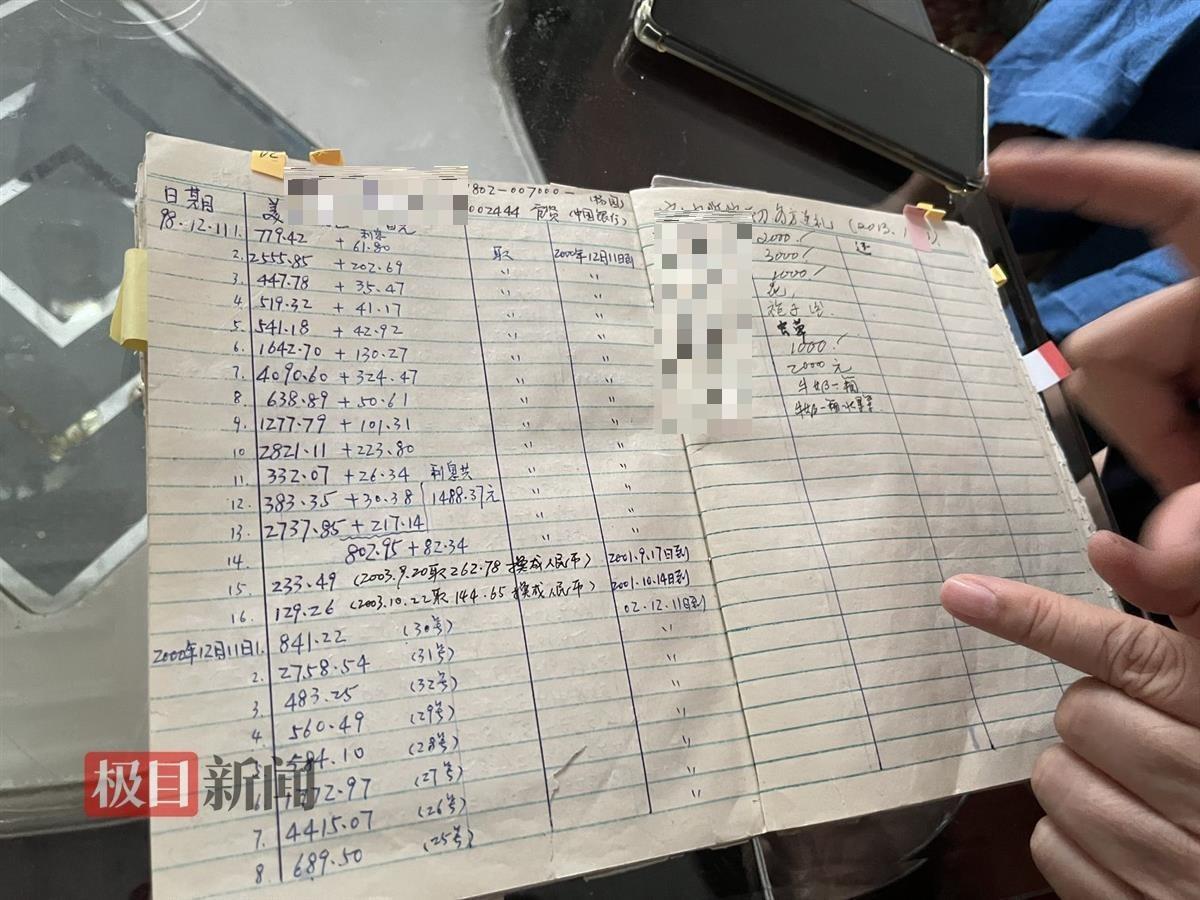 日期 美
1802-007000-
002444 (中国银行)
98.12.11 1. 779.42 + 利息 61.80 取 2000年12月11日到
2. 2555.85 + 202.69 〃 〃
3. 447.78 + 35.47 〃 〃
4. 519.32 + 41.17 〃 〃
5. 541.18 + 42.92 〃 〃
6. 1642.70 + 130.27 〃 〃
7. 4090.60 + 324.47 〃 〃
8 638.89 + 50.61 〃 〃
9. 1277.79 + 101.31 〃 〃
10 2821.11 + 223.80 〃 〃
11. 332.07 + 26.34 利息共 〃 〃
12. 383.35 + 30.38 1488.37元 〃 〃
13. 2737.85 + 217.14 〃 〃
14 802.95 + 82.34
15. 233.49 (2003.9.20取262.78 换成人民币) 2001.9.17日到
16. 129.26 (2003.10.22取144.65 换成人民币) 2001.10.14日到
2000年12月11日 1. 841.22 (30号) 02.12.11日到
2. 2758.54 (31号) 〃
3. 483.25 (32号) 〃
4. 560.49 (29号) 〃
584.10 (28号) 〃
2.97 (27号) 〃
7. 4415.07 (26号) 〃
8. 689.50 (25号)
(2013.
2000
3000
1000
花
1000
2000元
牛奶一箱
牛奶一箱
极目新闻